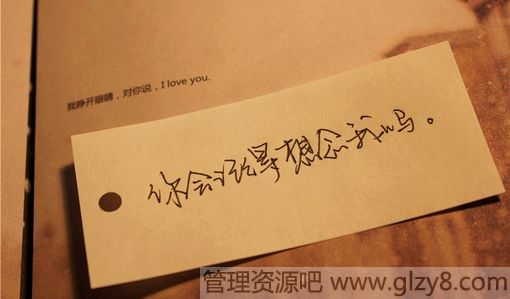 我睁开眼睛，对你说，I love you.
你会经常想念我吗。
管理资源吧 www.glzy8.com